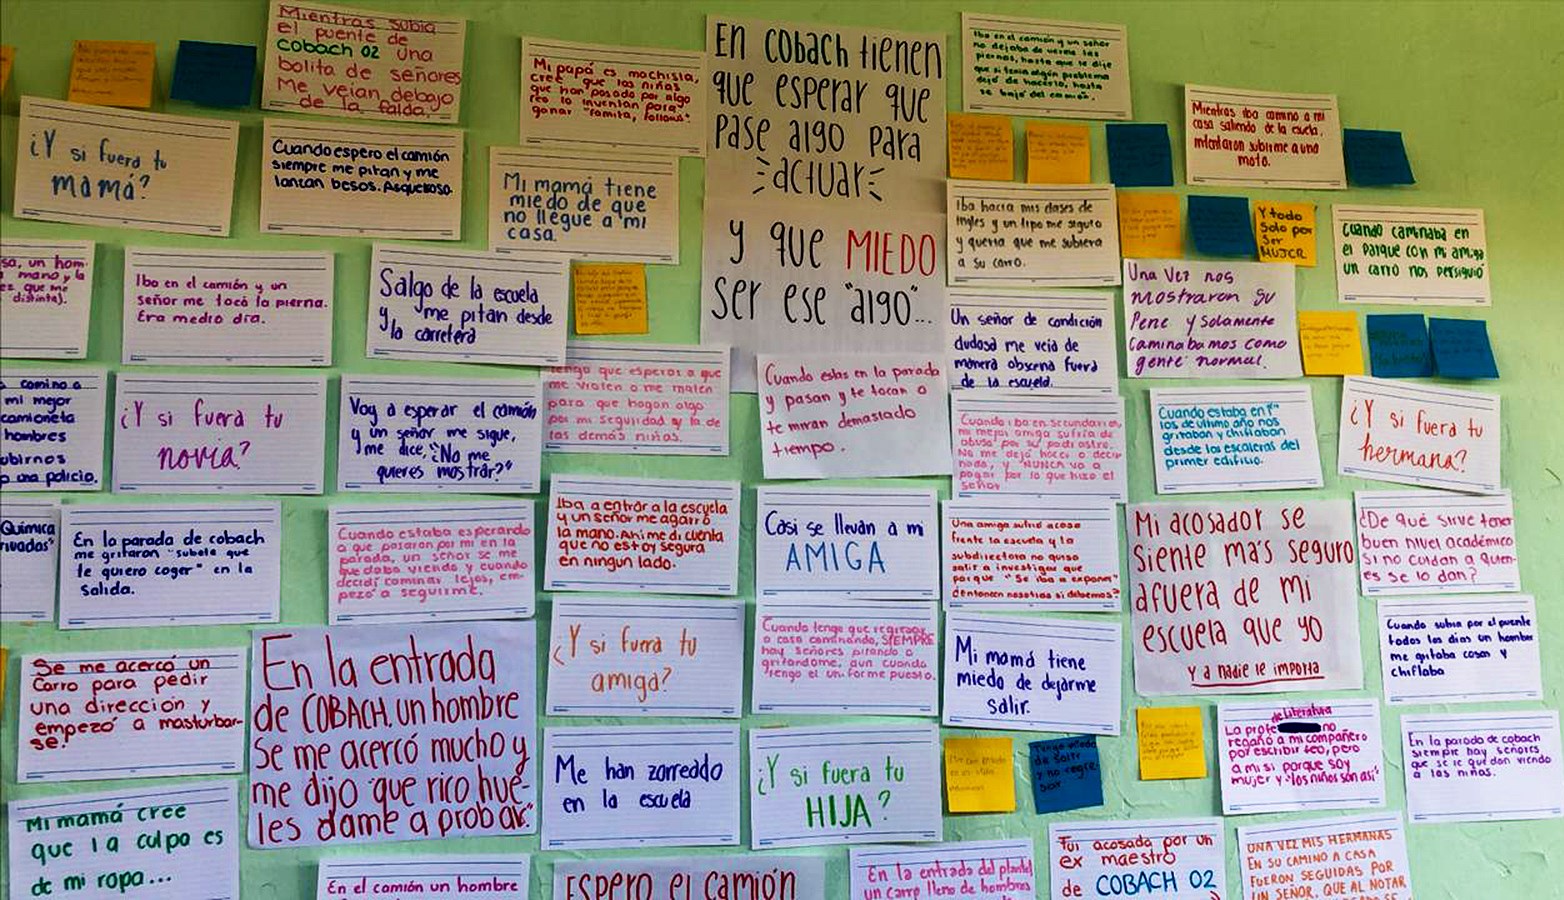 Mientras subia
el puente de
cobach 02 una
bolita de señores
Me veian debajo
de la falda.
Mi papá es machista,
cree que las niñas
que han pasado por algo
feo lo inventan para
ganar "famita, follows".
EN COBACH tienen
que esperar que
pase algo para
actuar
y que MIEDO
ser ese "algo"...
Iba en el camión y un señor
no dejaba de verme las
piernas, hasta que le dije
que si tenia algún problema
dejó de hacerlo, hasta
se bajó del camión.
Mientras iba camino a mi
casa saliendo de la escuela,
intentaron subirme a una
moto.
¿Y si fuera tu
mamá?
Cuando espero el camión
siempre me pitan y me
lanzan besos. Asqueroso.
Mi mamá tiene
miedo de que
no llegue a mi
casa.
iba hacia mis clases de
ingles y un tipo me siguio
y queria que me subiera
a su carro.
Y todo
Solo por
Ser
MUJER
Cuando caminaba en
el parque con mi amiga
un carro nos persiguió
sa, un hom-
mano y la
ez que me
distinta).
Iba en el camión y un
señor me tocó la pierna.
Era medio dia.
Salgo de la escuela
y me pitan desde
la carretera
Un señor de condición
dudosa me veia de
manera obscena fuera
de la escuela.
Una vez nos
mostraron su
Pene y solamente
Caminabamos como
gente normal.
camino a
mi mejor
camioneta
hombres
ubirnos
una policia.
¿Y si fuera tu
novia?
Voy a esperar el camión
y un señor me sigue,
y me dice, "¿No me
quieres mostrar?"
Tengo que esperar a que
me violen o me maten
para que hagan algo
por mi seguridad y la de
las demás niñas.
Cuando estas en la parada
y pasan y te tocan o
te miran demasiado
tiempo.
Cuando iba en secundaria
mi mejor amiga sufria de
abuso por su padrastro.
No me dejó hacer o decir
nada, y "NUNCA va a
pagar por lo que hizo el
señor.
Cuando estaba en 1°
los de ultimo año nos
gritaban y chiflaban
desde las escaleras del
primer edificio.
¿Y si fuera tu
hermana?
Química
rivadas"
En la parada de cobach
me gritaron "subete que
te quiero coger" en la
Salida.
Cuando estaba esperando
a que pasaran por mi en la
parada, un señor se me
quedaba viendo y cuando
decidi caminar lejos, em-
pezó a seguirme.
Iba a entrar a la escuela
y un señor me agarró
la mano. Ahi me di cuenta
que no estoy segura
en ningun lado.
Casi se llevan a mi
AMIGA
Una amiga sufrio acoso
frente la escuela y la
subdirectora no quiso
salir a investigar que
porque "se iba a exponer"
¿entonces nosotras si debemos?
Mi acosador se
siente más seguro
afuera de mi
escuela que yo
Y a nadie le importa
¿De qué sirve tener
buen nivel académico
si no cuidan a quien-
es se lo dan?
Cuando subia por el puente
todos los dias un hombre
me gritaba cosas y
chiflaba
Se me acercó un
Carro para pedir
una dirección y
empezó a masturbar-
se.
En la entrada
de COBACH, un hombre
Se me acercó mucho y
me dijo "que rico hue-
les dame a probar."
¿Y si fuera tu
amiga?
Cuando tengo que regresar
a casa caminando, SIEMPRE
hay señores pitando o
gritandome, aun cuando
tengo el uniforme puesto.
Mi mamá tiene
miedo de dejarme
salir.
de literatura
La profe no
regaño a mi compañero
por escribir feo, pero
a mi si porque soy
mujer y "los niños son así"
En la parada de cobach
siempre hay señores
que se le quedan viendo
a las niñas.
Me han zorreado
en la escuela
¿Y si fuera tu
HIJA?
Tengo miedo
de salir
y no regre-
sar
Mi mamá cree
que la culpa es
de mi ropa...
En el camión un hombre
ESPERO EL CAMIÓN
En la entrada del plantel
un carro lleno de hombres
Fui acosada por un
ex maestro
de COBACH 02
UNA VEZ MIS HERMANAS
EN SU CAMINO A CASA
FUERON SEGUIDAS POR
UN SEÑOR, QUE AL NOTAR